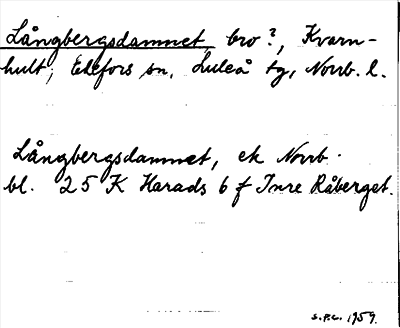 Långbergsdammet, bro?, Kvarn-
hult, Edefors sn, Luleå tg, Norrb. l.
Långbergsdammet, ek Norrb.
bl. 25 K Harads 6 f Inre Råberget.
S.P.C. 1959.